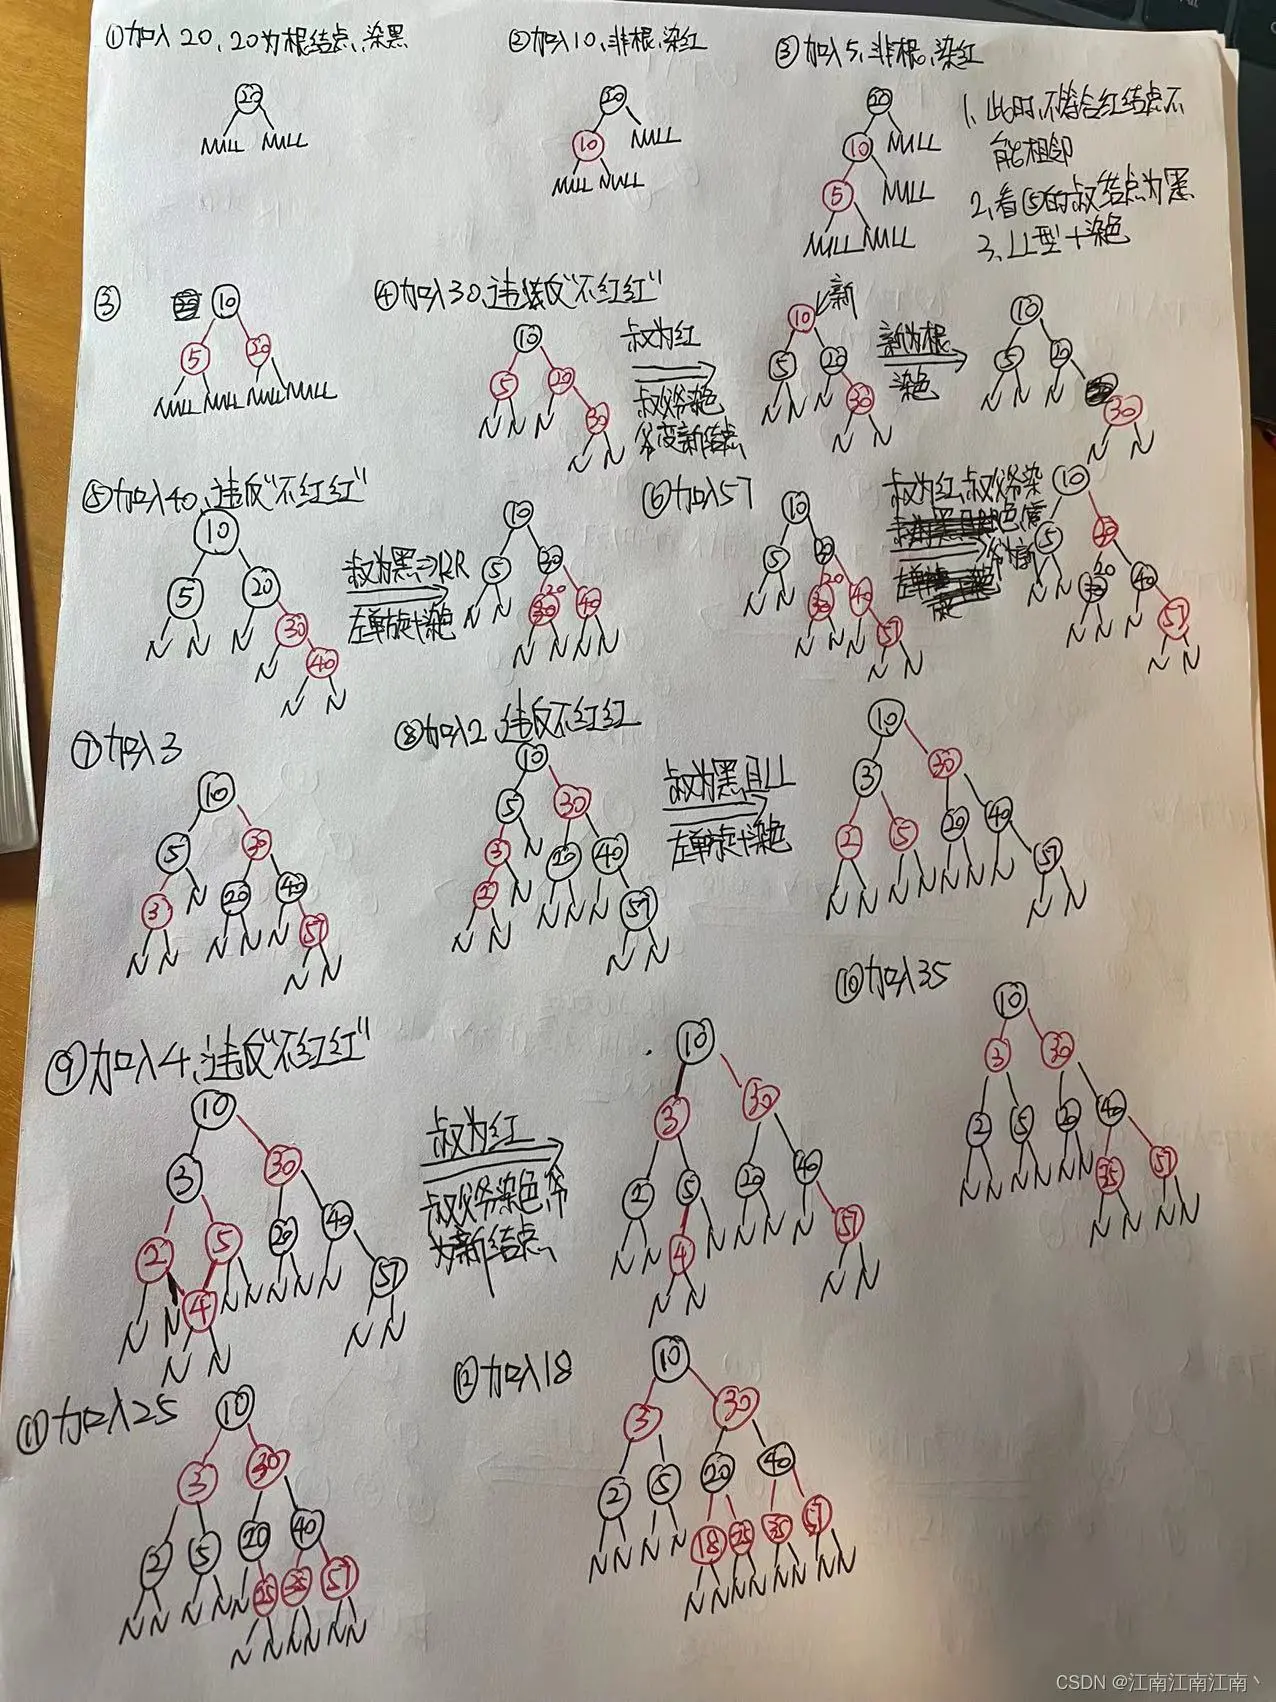 ①加入20、20为根结点、染黑
②加入10、非根、染红
③加入5、非根、染红
20
NULL NULL
20
10 NULL
NULL NULL
20
10 NULL
5 NULL
NULL NULL
1、此时、不符合红结点不
能相邻
2、看⑤的叔结点为黑
3、LL型+染色
③
10
5 20
NULL NULL NULL NULL
④加入30、违反"不红红"
10
5 20
N N N 30
N N
叔为红
叔父爷染色
爷变新结点
新
10
5 20
N N N 30
N N
新为根
染色
10
5 20
N N N 30
N N
⑤加入40、违反"不红红"
10
5 20
N N N 30
N 40
N N
叔为黑⇒RR
左单旋+染色
10
5 30
N N 20 40
N N N N
⑥加入57
10
5 30
N N 20 40
N N N 57
N N
叔为红、叔父爷染
色、
爷
新
10
5 30
N N 20 40
N N N 57
N N
⑦加入3
10
5 30
3 N 20 40
N N N N N 57
N N
⑧加入2、违反不红红
10
5 30
3 N 20 40
2 N N N N 57
N N N N
叔为黑、且LL
左单旋+染色
10
3 30
2 5 20 40
N N N N N N N 57
N N
⑨加入4、违反"不红红"
10
3 30
2 5 20 40
N N 4 N N N N 57
N N N N
叔为红
叔父爷染色、爷
为新结点、
10
3 30
2 5 20 40
N N 4 N N N N 57
N N N N
⑩加入35
10
3 30
2 5 20 40
N N N N N N 35 57
N N N N
⑪加入25
10
3 30
2 5 20 40
N N N N N 25 35 57
N N N N N N
⑫加入18
10
3 30
2 5 20 40
N N N N 18 25 35 57
N N N N N N N N
CSDN @江南江南江南丶